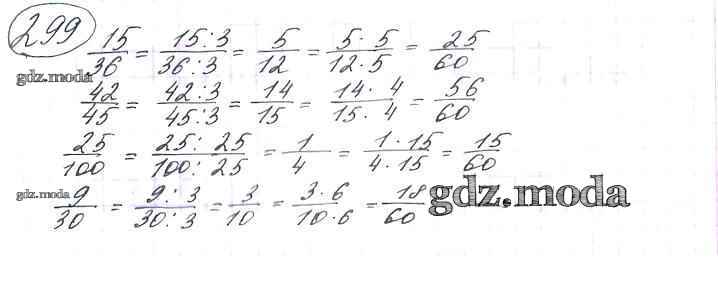 299
15/36 = 15:3/36:3 = 5/12 = 5·5/12·5 = 25/60
gdz.moda
42/45 = 42:3/45:3 = 14/15 = 14·4/15·4 = 56/60
25/100 = 25:25/100:25 = 1/4 = 1·15/4·15 = 15/60
gdz.moda
9/30 = 9:3/30:3 = 3/10 = 3·6/10·6 = 18/60
gdz.moda